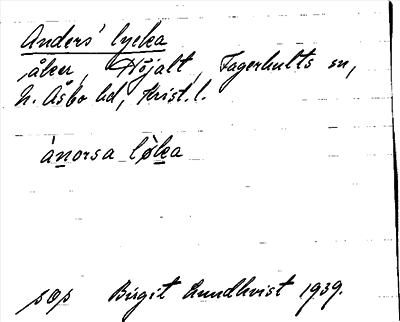 Anders' lycka
åker, Höjalt, Fagerhults sn,
N. Åsbo hd, Krist. l.
ánorsa lø̀ka
sOs Birgit Lundkvist 1939.